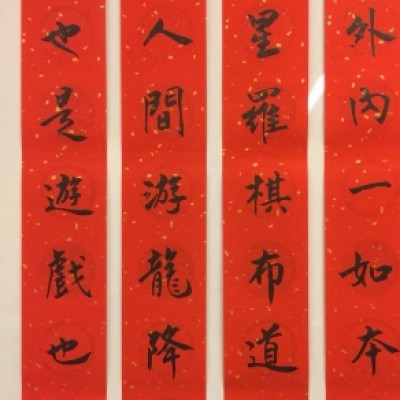 外內一如本
星羅棋布道
人間游龍降
也是遊戲也